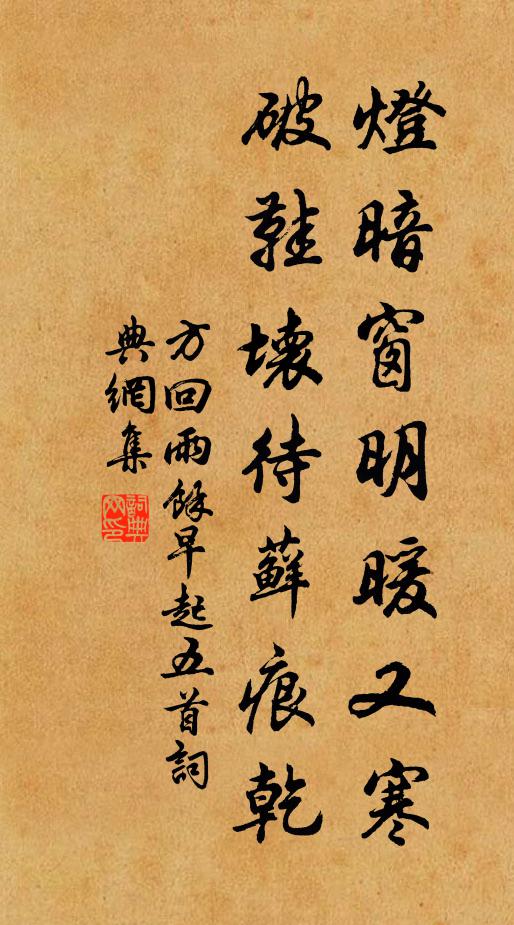 燈暗窗明暖又寒
破鞋壞待蘚痕乾
方回雨餘早起五首詞
典網集
詞典網印